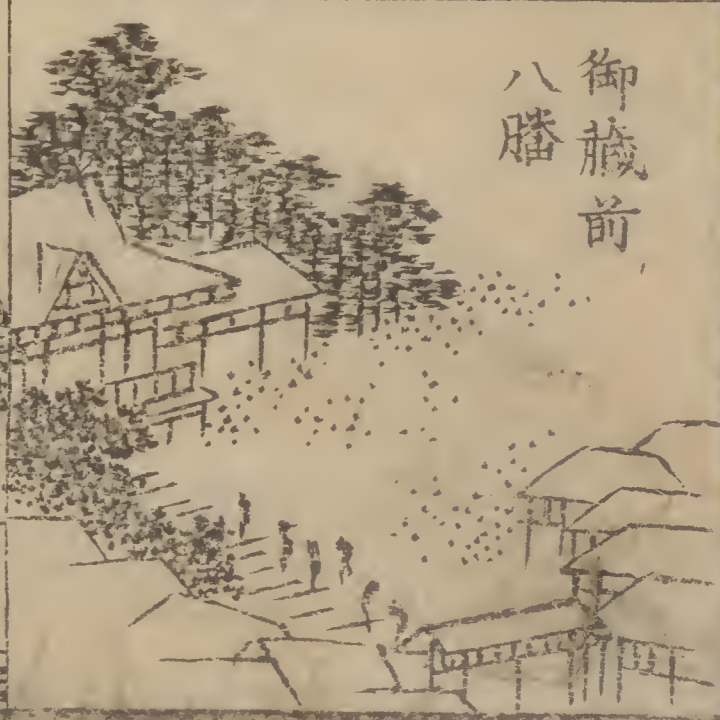 御藏前
八幡